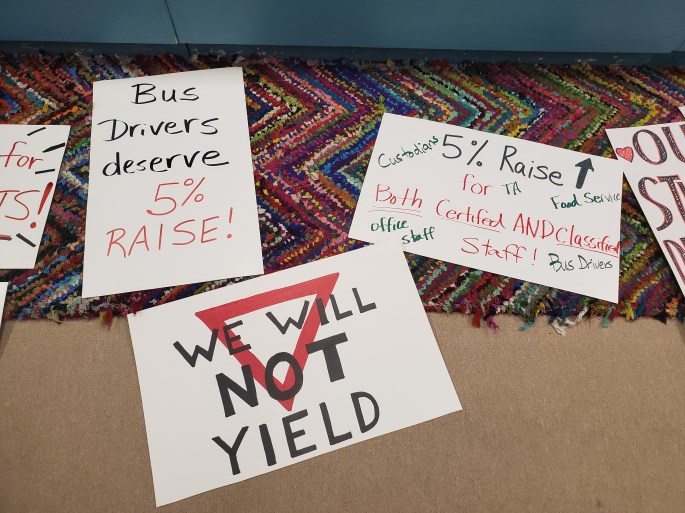 for
TS!
Bus
Drivers
deserve
5%
RAISE!
Custodians 5% Raise
for TA Food Service
Both Certifed AND Classified
office staff
Staff!
Bus Drivers
OU
ST
WE WILL
NOT
YIELD